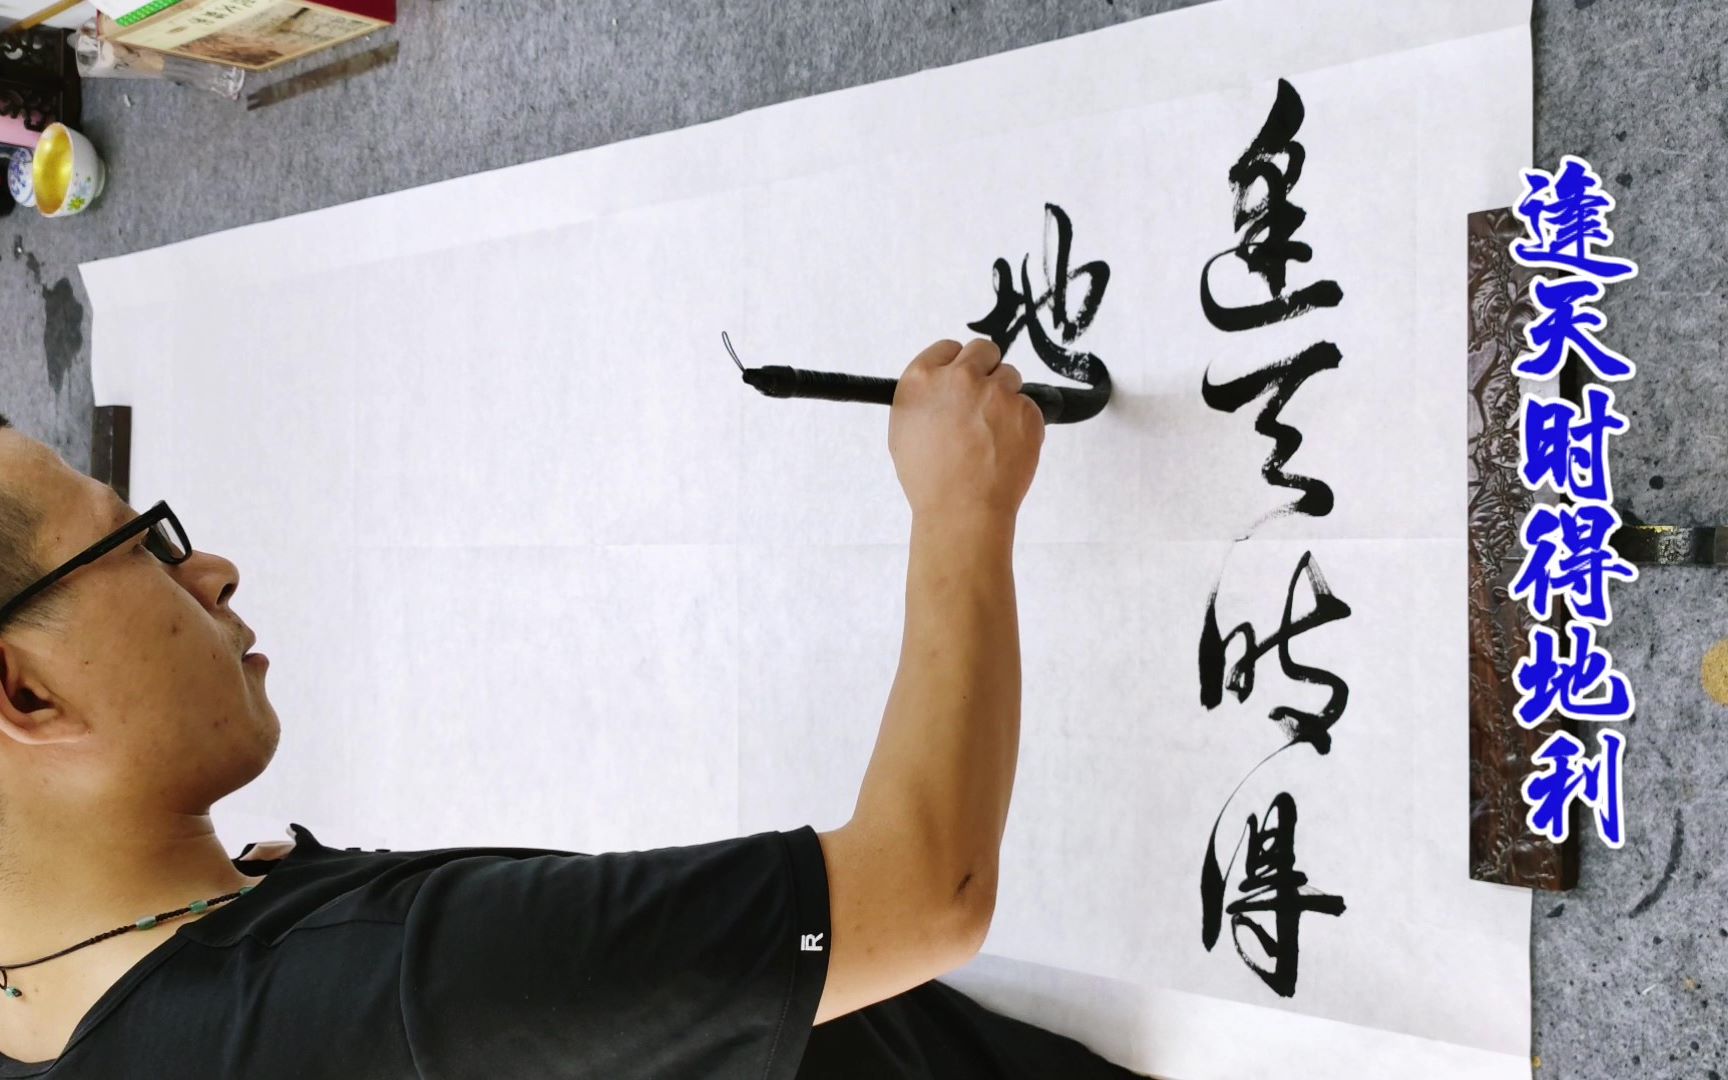 逢天时得地利
逢天時得
地
R